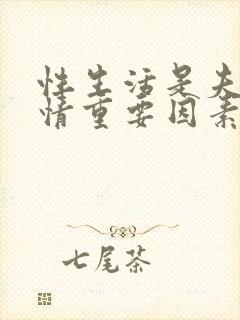 性生活是夫
情重要因素
七尾茶